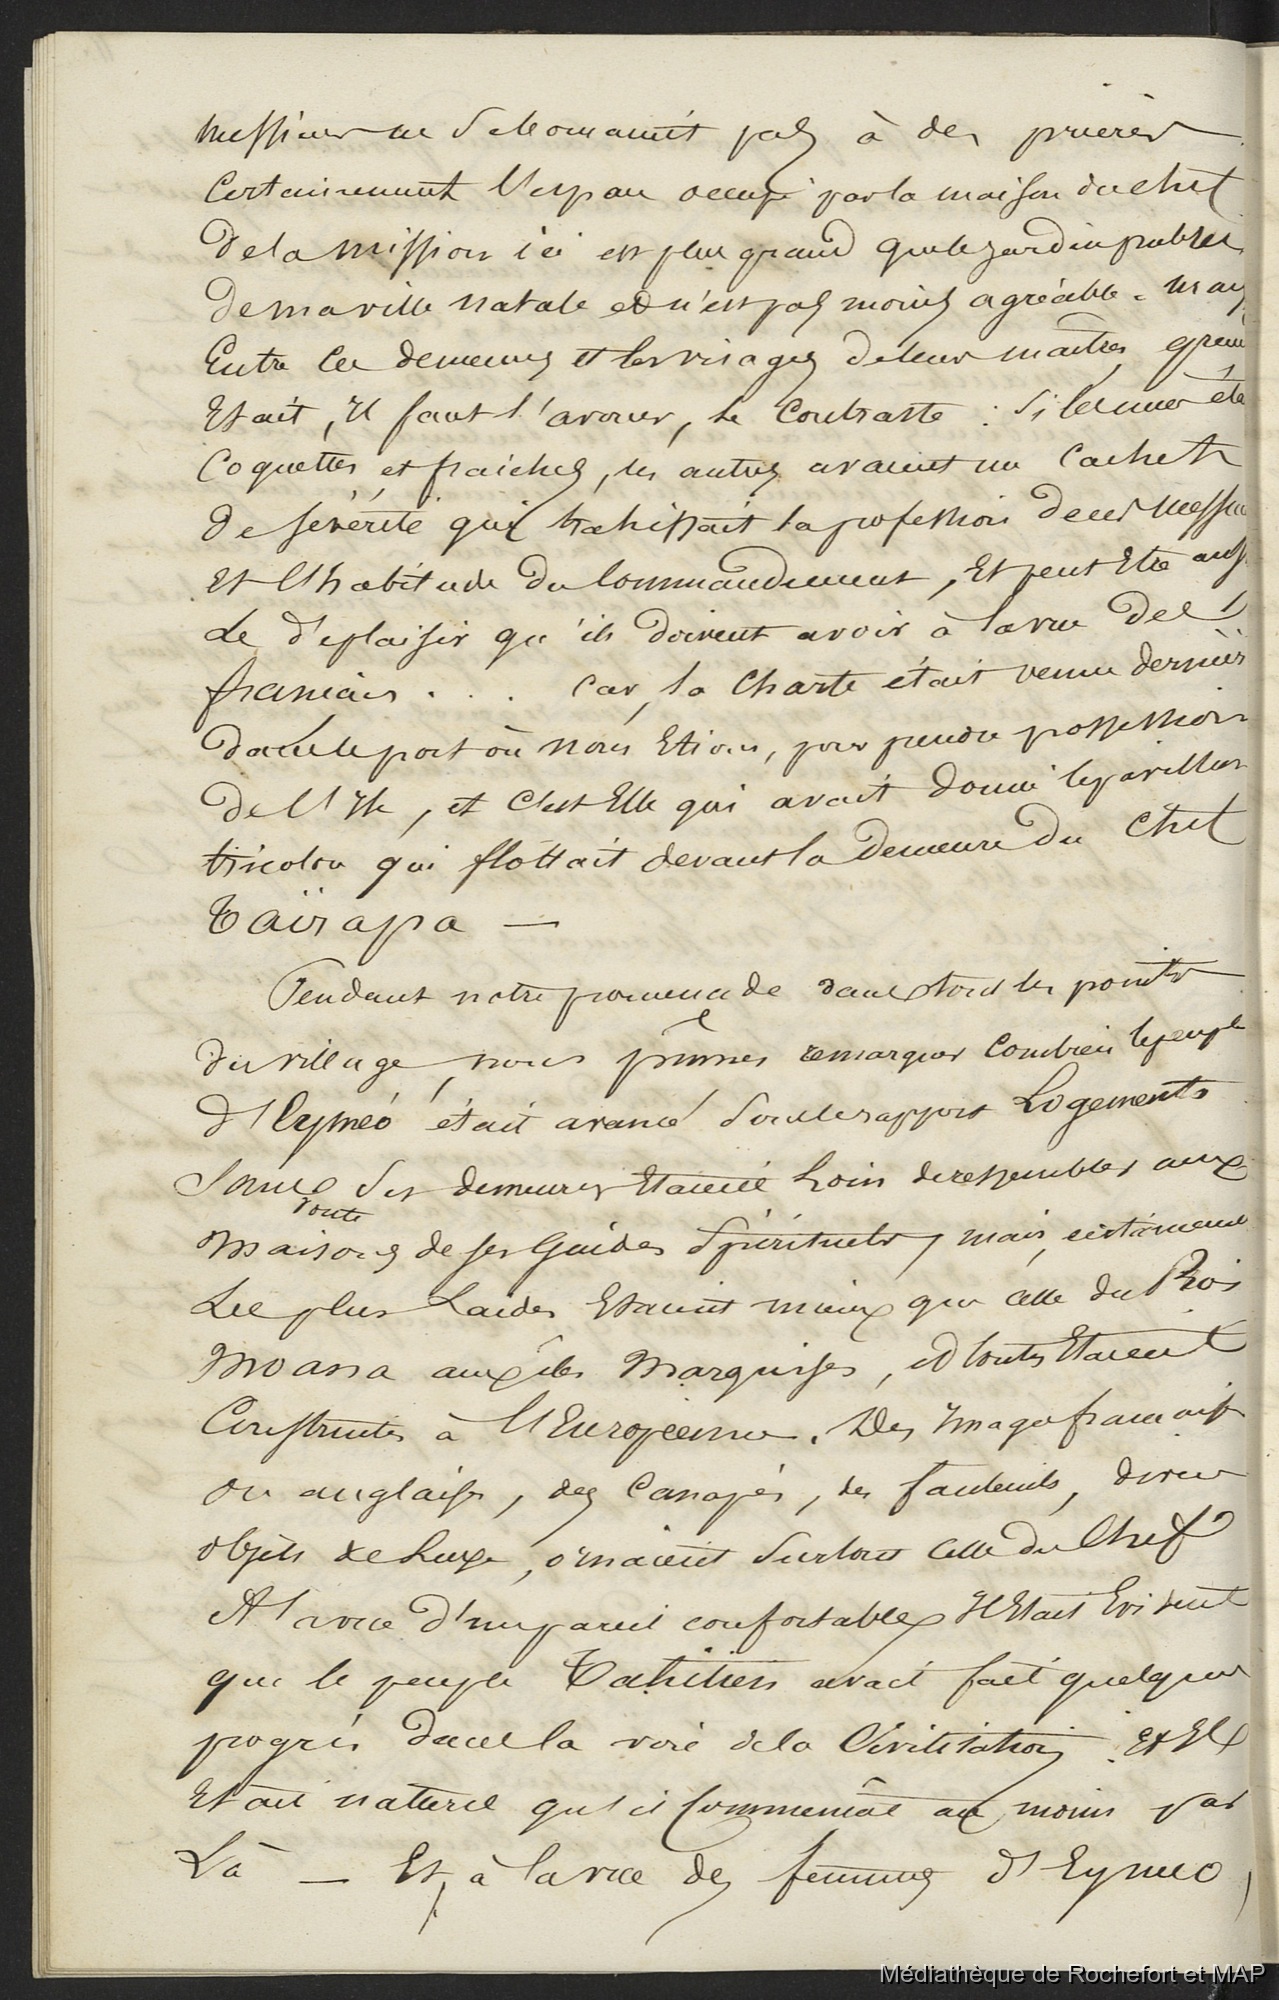 messieurs ne se bornaient pas à des prières
Certainement l'espace occupé par la maison du chef
de la mission ici est plus grand que le jardin public
de ma ville natale et n'est pas moins agréable. Mais
Entre les demeures et les visages de leurs maîtres, grand
Etait, il faut l'avouer, le Contraste : si les unes éta
Coquettes et fraiches, les autres avaient un Cachet
de sévérité qui trahissait la profession de ces messieu
Et l'habitude du Commandement, Et peut Etre auss
Le déplaisir qu'ils doivent avoir à la vue des
français . . . Car, la Charte était venue dernièr
dans le port où nous Etions, pour prendre possession
de l'Ile, et c'est Elle qui avait donné le pavillon
tricolor qui flottait devant la demeure du Chef
Taïrapa —
Pendant notre promenade dans tous les points
du village, nous pûmes remarquer Combien le peuple
d'Eyméo était avancé sous le rapport Logements
Sans doute ses demeures Etaient Loin de ressembler aux
maisons de ses Guides Spirituels, mais, certainement
Les plus Laides Etaient mieux que celle du Roi
Moana aux îles Marquises, et toutes Etaient
Construites à l'Européenne. Des Images françaises
ou anglaises, des Canapés, des fauteuils, divers
objets de Luxe, ornaient surtout celle du Chef
A la vue d'un pareil confortable Il Etait Evident
que le peuple Tahitien avait fait quelques
progrès dans la voie de la Civilisation. Et Il
Etait naturel qu'il commençât au moins par
Là — Et, à la vue des femmes d'Eymeo,
Médiathèque de Rochefort et MAP